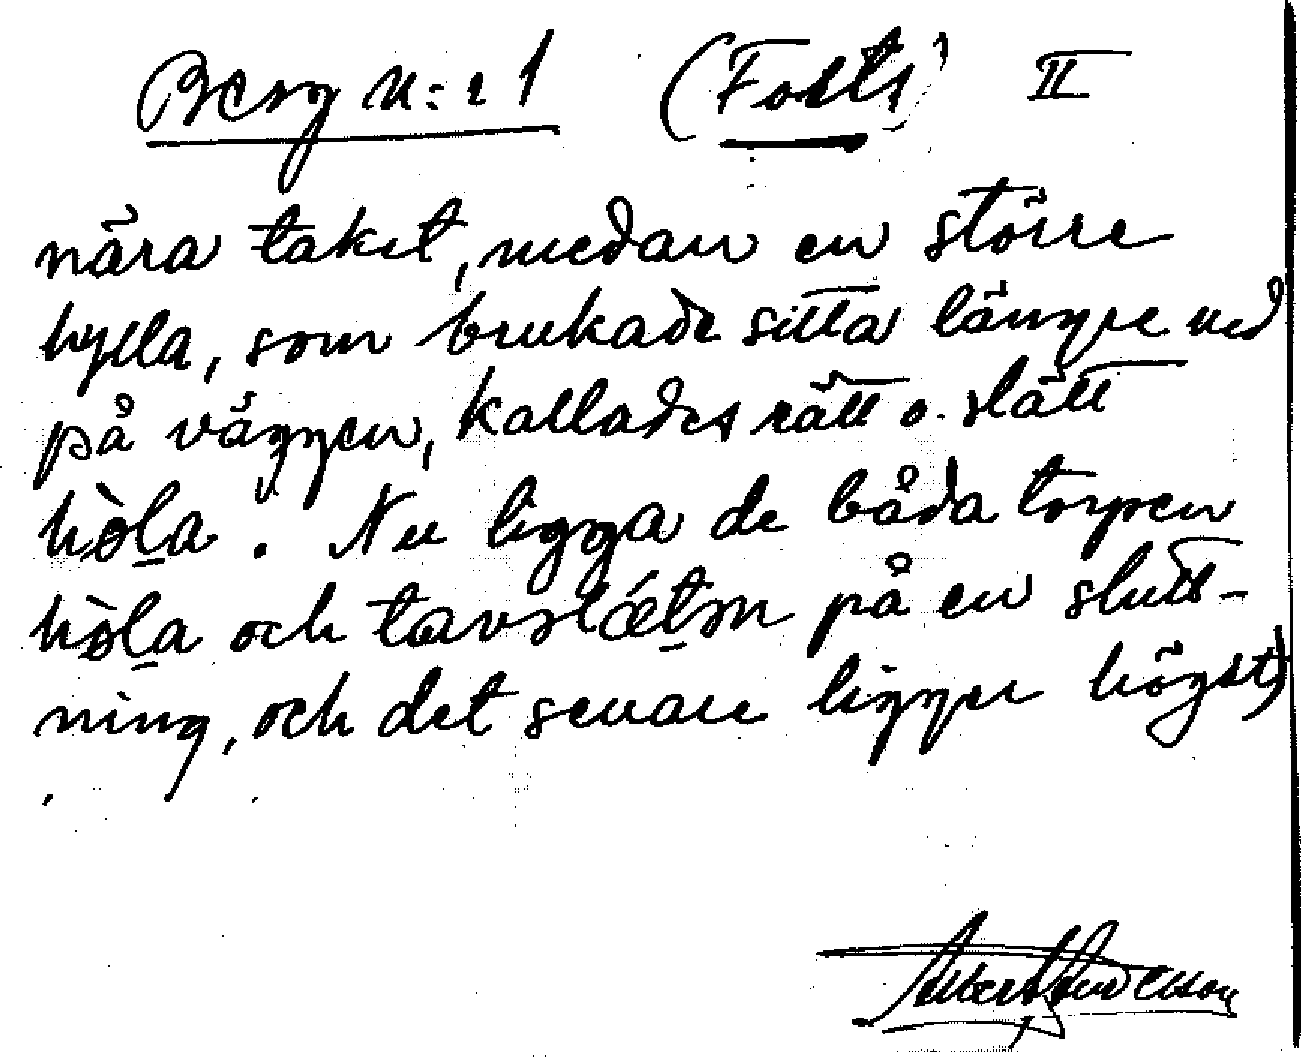 Berg n:r 1 (Forts) II
nära taket, medan en större
hylla, som brukade sitta längre ned
på väggen, kallades rätt o. slätt
hòla. Nu ligga de båda torpen
hòla och tavslǽtm på en slutt-
ning, och det senare ligger högst)
Albert Anderson